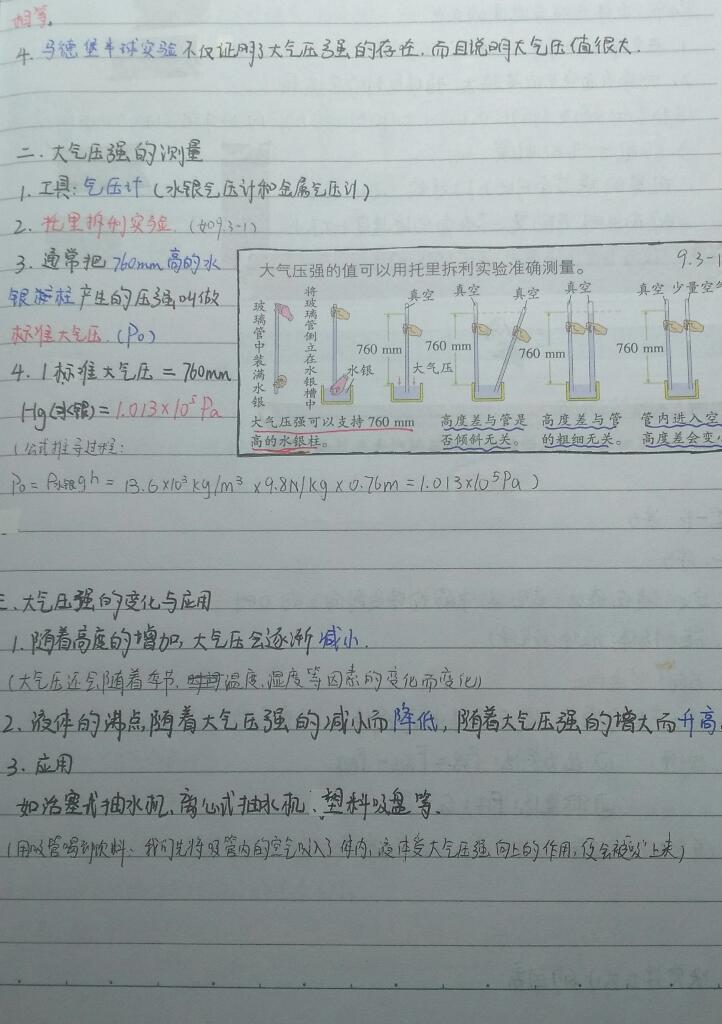 相等。
4. 马德堡半球实验不仅证明了大气压强的存在，而且说明大气压值很大．
二．大气压强的测量
1. 工具：气压计（水银气压计和金属气压计）
2. 托里拆利实验．（如9.3-1）
3. 通常把760mm高的水
银柱产生的压强叫做
标准大气压．(P₀)
4. 1标准大气压 = 760mm
Hg(水银) = 1.013×10⁵Pa
（公式推导过程：
P₀ = ρ水银gh = 13.6×10³kg/m³ ×9.8N/kg×0.76m = 1.013×10⁵Pa ）
9.3-1
大气压强的值可以用托里拆利实验准确测量。
玻璃管中装满水银
将玻璃管倒立在水银槽中
真空 真空 真空 真空 真空 少量空气
760 mm 760 mm 760 mm 760 mm
水银 大气压
大气压强可以支持 760 mm
高的水银柱。
高度差与管是
否倾斜无关。
高度差与管
的粗细无关。
管内进入空
高度差会变小
三．大气压强的变化与应用
1. 随着高度的增加，大气压会逐渐减小．
（大气压还会随着季节、温度、湿度等因素的变化而变化）
2. 液体的沸点随着大气压强的减小而降低，随着大气压强的增大而升高．
3. 应用
如活塞式抽水机、离心式抽水机、塑料吸盘等．
（用吸管喝到饮料：我们先将吸管内的空气吸入了体内，液体受大气压强向上的作用，便会被"吸"上来）